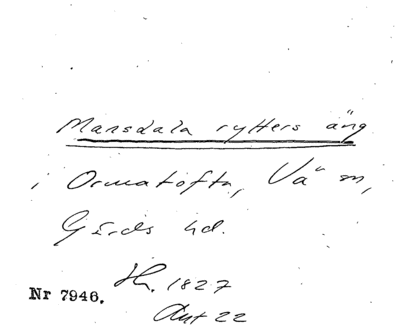 Mansdala rytters äng
i Ormatofta, Vä sn,
Gärds hd.
Hr. 1827
Akt 22
Nr 7946.